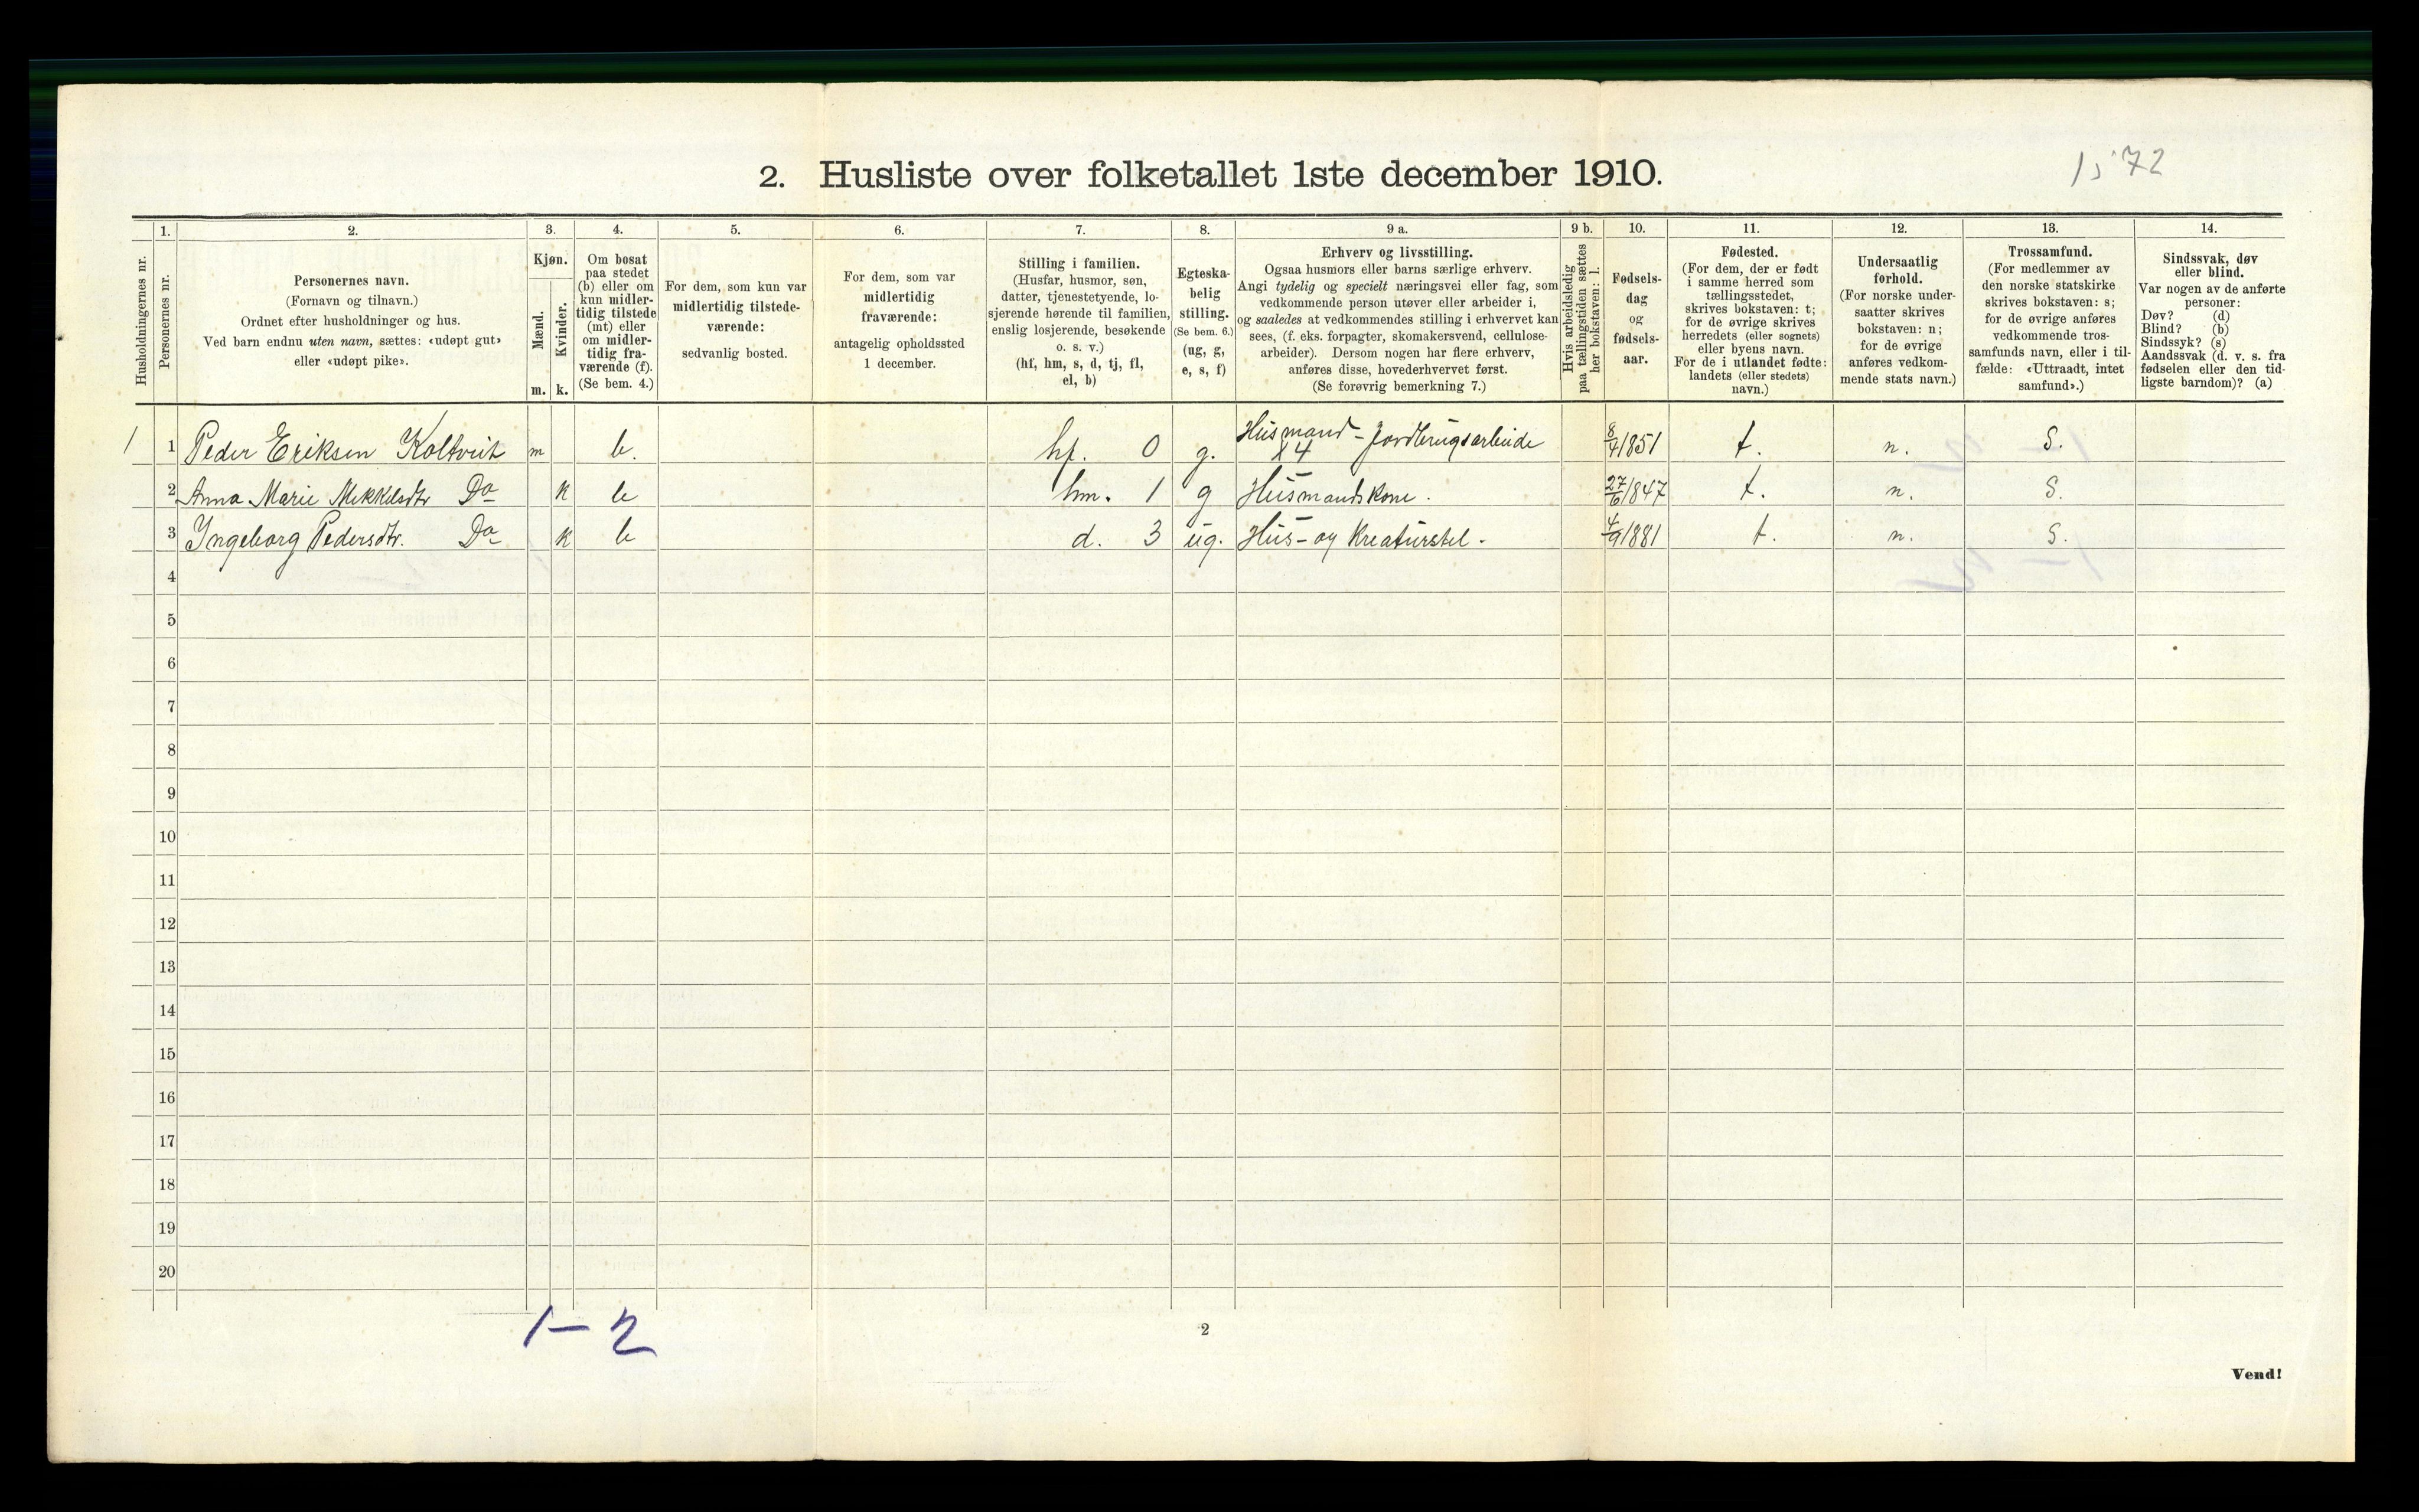 2. Husliste over folketallet 1ste december 1910.
1572
Husholdningernes nr.
1.
Personernes nr.
2.
Personernes navn.
(Fornavn og tilnavn.)
Ordnet efter husholdninger og hus.
Ved barn endnu uten navn, sættes: «udøpt gut»
eller «udøpt pike».
3.
Kjøn.
Mænd.
Kvinder.
m. k.
4.
Om bosat
paa stedet
(b) eller om
kun midler-
tidig tilstede
(mt) eller
om midler-
tidig fra-
værende (f).
(Se bem. 4.)
5.
For dem, som kun var
midlertidig tilstede-
værende:
sedvanlig bosted.
6.
For dem, som var
midlertidig
fraværende:
antagelig opholdssted
1 december.
7.
Stilling i familien.
(Husfar, husmor, søn,
datter, tjenestetyende, lo-
sjerende hørende til familien,
enslig losjerende, besøkende
o. s. v.)
(hf, hm, s, d, tj, fl,
el, b)
8.
Egteska-
belig
stilling.
(Se bem. 6.)
(ug, g,
e, s, f)
9 a.
Erhverv og livsstilling.
Ogsaa husmors eller barns særlige erhverv.
Angi tydelig og specielt næringsvei eller fag, som
vedkommende person utøver eller arbeider i,
og saaledes at vedkommendes stilling i erhvervet kan
sees, (f. eks. forpagter, skomakersvend, cellulose-
arbeider). Dersom nogen har flere erhverv,
anføres disse, hovederhvervet først.
(Se forøvrig bemerkning 7.)
9 b.
Hvis arbeidsledig
paa tællingstiden sættes
her bokstaven: l.
10.
Fødsels-
dag
og
fødsels-
aar.
11.
Fødested.
(For dem, der er født
i samme herred som
tællingsstedet,
skrives bokstaven: t;
for de øvrige skrives
herredets (eller sognets)
eller byens navn.
For de i utlandet fødte:
landets (eller stedets)
navn.)
12.
Undersaatlig
forhold.
(For norske under-
saatter skrives
bokstaven: n;
for de øvrige
anføres vedkom-
mende stats navn.)
13.
Trossamfund.
(For medlemmer av
den norske statskirke
skrives bokstaven: s;
for de øvrige anføres
vedkommende tros-
samfunds navn, eller i til-
fælde: «Uttraadt, intet
samfund».)
14.
Sindssvak, døv
eller blind.
Var nogen av de anførte
personer:
Døv? (d)
Blind? (b)
Sindssyk? (s)
Aandssvak (d. v. s. fra
fødselen eller den tid-
ligste barndom)? (a)
1 1 Peder Eriksen Koltvit m b. hf. 0 g. Husmand - Jordbrugsarbeide X4 8/4 1851 t. n. S.
2 Anna Marie Mikkelsdtr Do k b hm. 1 g Husmandskone. 27/6 1847 t. n. S.
3 Ingeborg Pedersdtr. Do k b d. 3 ug. Hus- og Kreaturstel. 4/9 1881 t. n. S.
4
5
6
7
8
9
10
11
12
13
14
15
16
17
18
19
20
1-2
2
Vend!